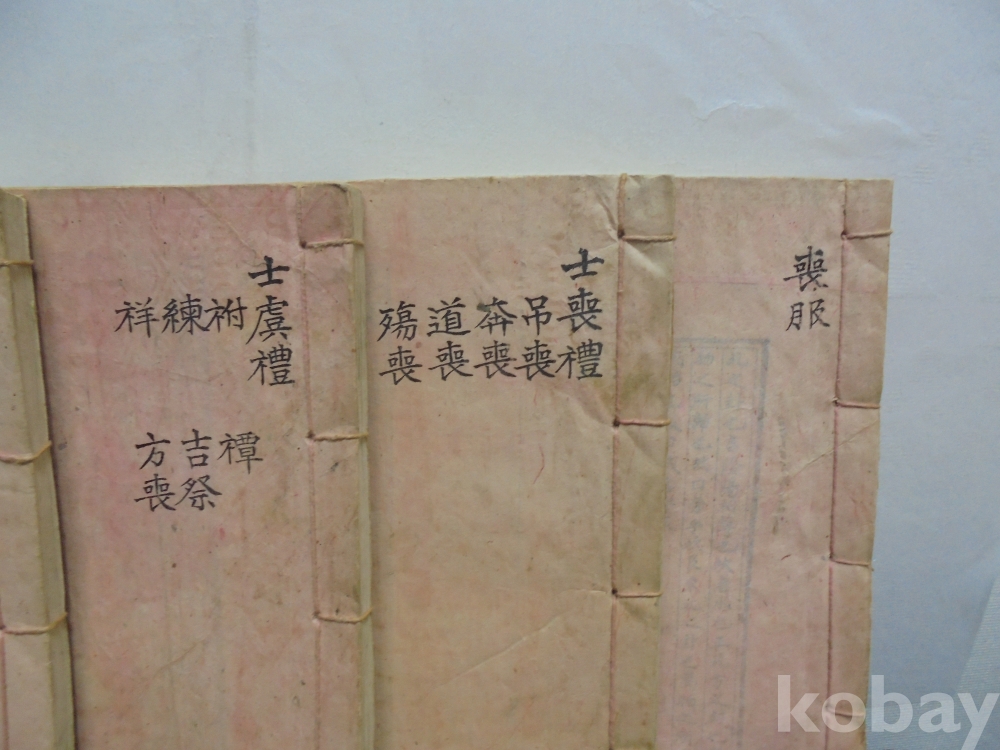 喪服
士喪禮
吊喪
奔喪
道喪
殤喪
士虞禮
祔
練
祥
禫
吉祭
方喪
kobay